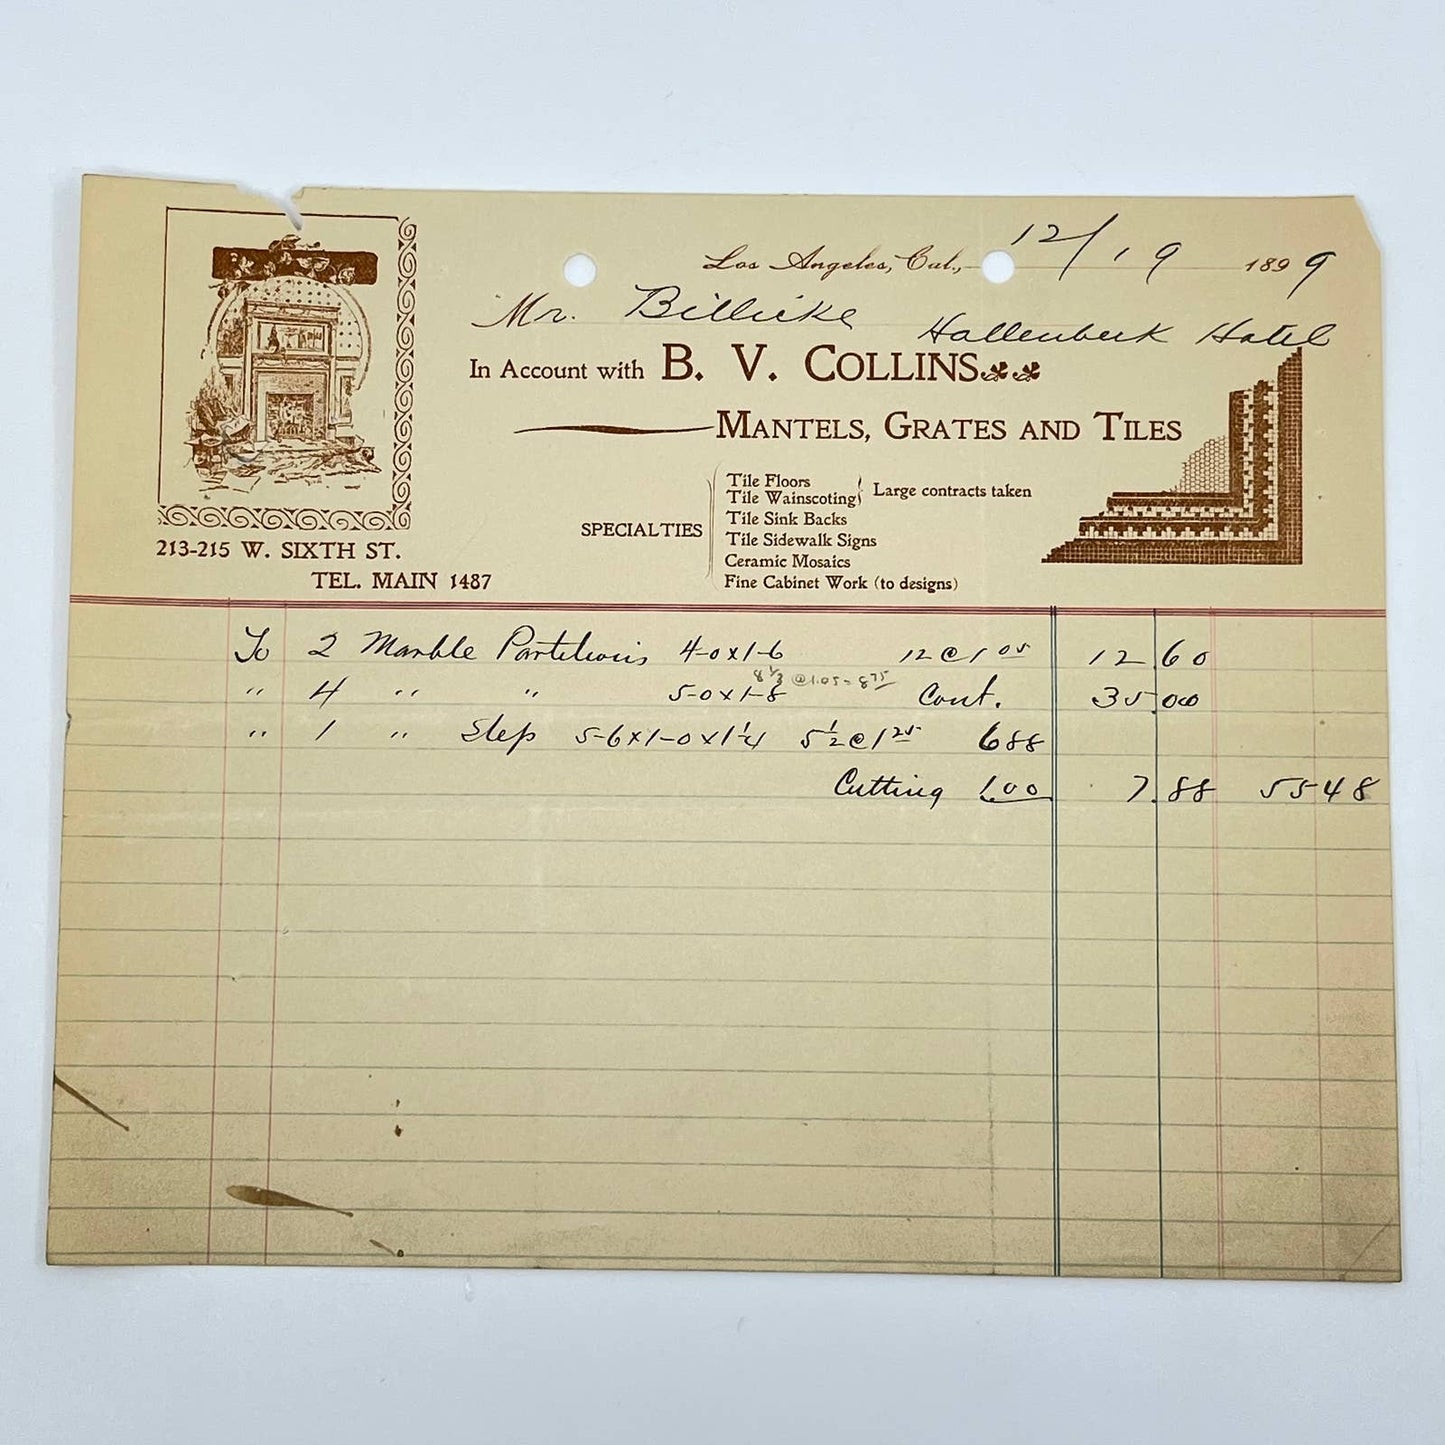 Los Angeles, Cal., 12/19 1899
Mr. Billicke
Hallenbeck Hotel
In Account with B. V. COLLINS
MANTELS, GRATES AND TILES
SPECIALTIES
Tile Floors
Tile Wainscoting
Large contracts taken
Tile Sink Backs
Tile Sidewalk Signs
Ceramic Mosaics
Fine Cabinet Work (to designs)
213-215 W. SIXTH ST.
TEL. MAIN 1487
To 2 Marble Partitions 4-0x1-6 12@1 05 12 60
8 1/3 @1.05 = 8 75
" 4 " " 5-0x1-8 Cont. 35.00
" 1 " Step 5-6x1-0x1 1/4 5 1/2 @1 25 6 88
Cutting 1.00 7.88 55 48